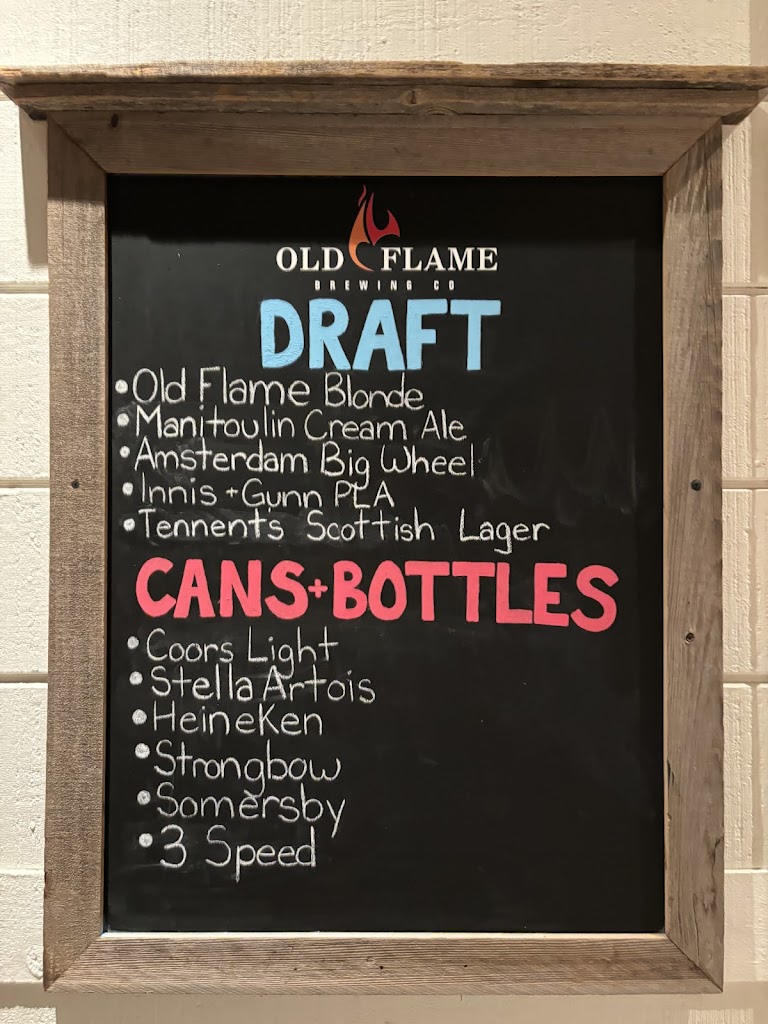 OLD FLAME
BREWING CO
DRAFT
• Old Flame Blonde
• Manitoulin Cream Ale
• Amsterdam Big Wheel
• Innis + Gunn PLA
• Tennent's Scottish Lager
CANS+BOTTLES
• Coors Light
• Stella Artois
• Heineken
• Strongbow
• Somersby
• 3 Speed